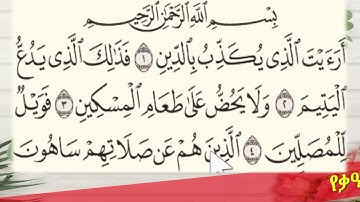 بِسْمِ اللَّهِ الرَّحْمَٰنِ الرَّحِيمِ
أَرَءَيْتَ الَّذِي يُكَذِّبُ بِالدِّينِ ١ فَذَٰلِكَ الَّذِي يَدُعُّ
الْيَتِيمَ ٢ وَلَا يَحُضُّ عَلَىٰ طَعَامِ الْمِسْكِينِ ٣ فَوَيْلٌ
لِّلْمُصَلِّينَ ٤ الَّذِينَ هُمْ عَن صَلَاتِهِمْ سَاهُونَ